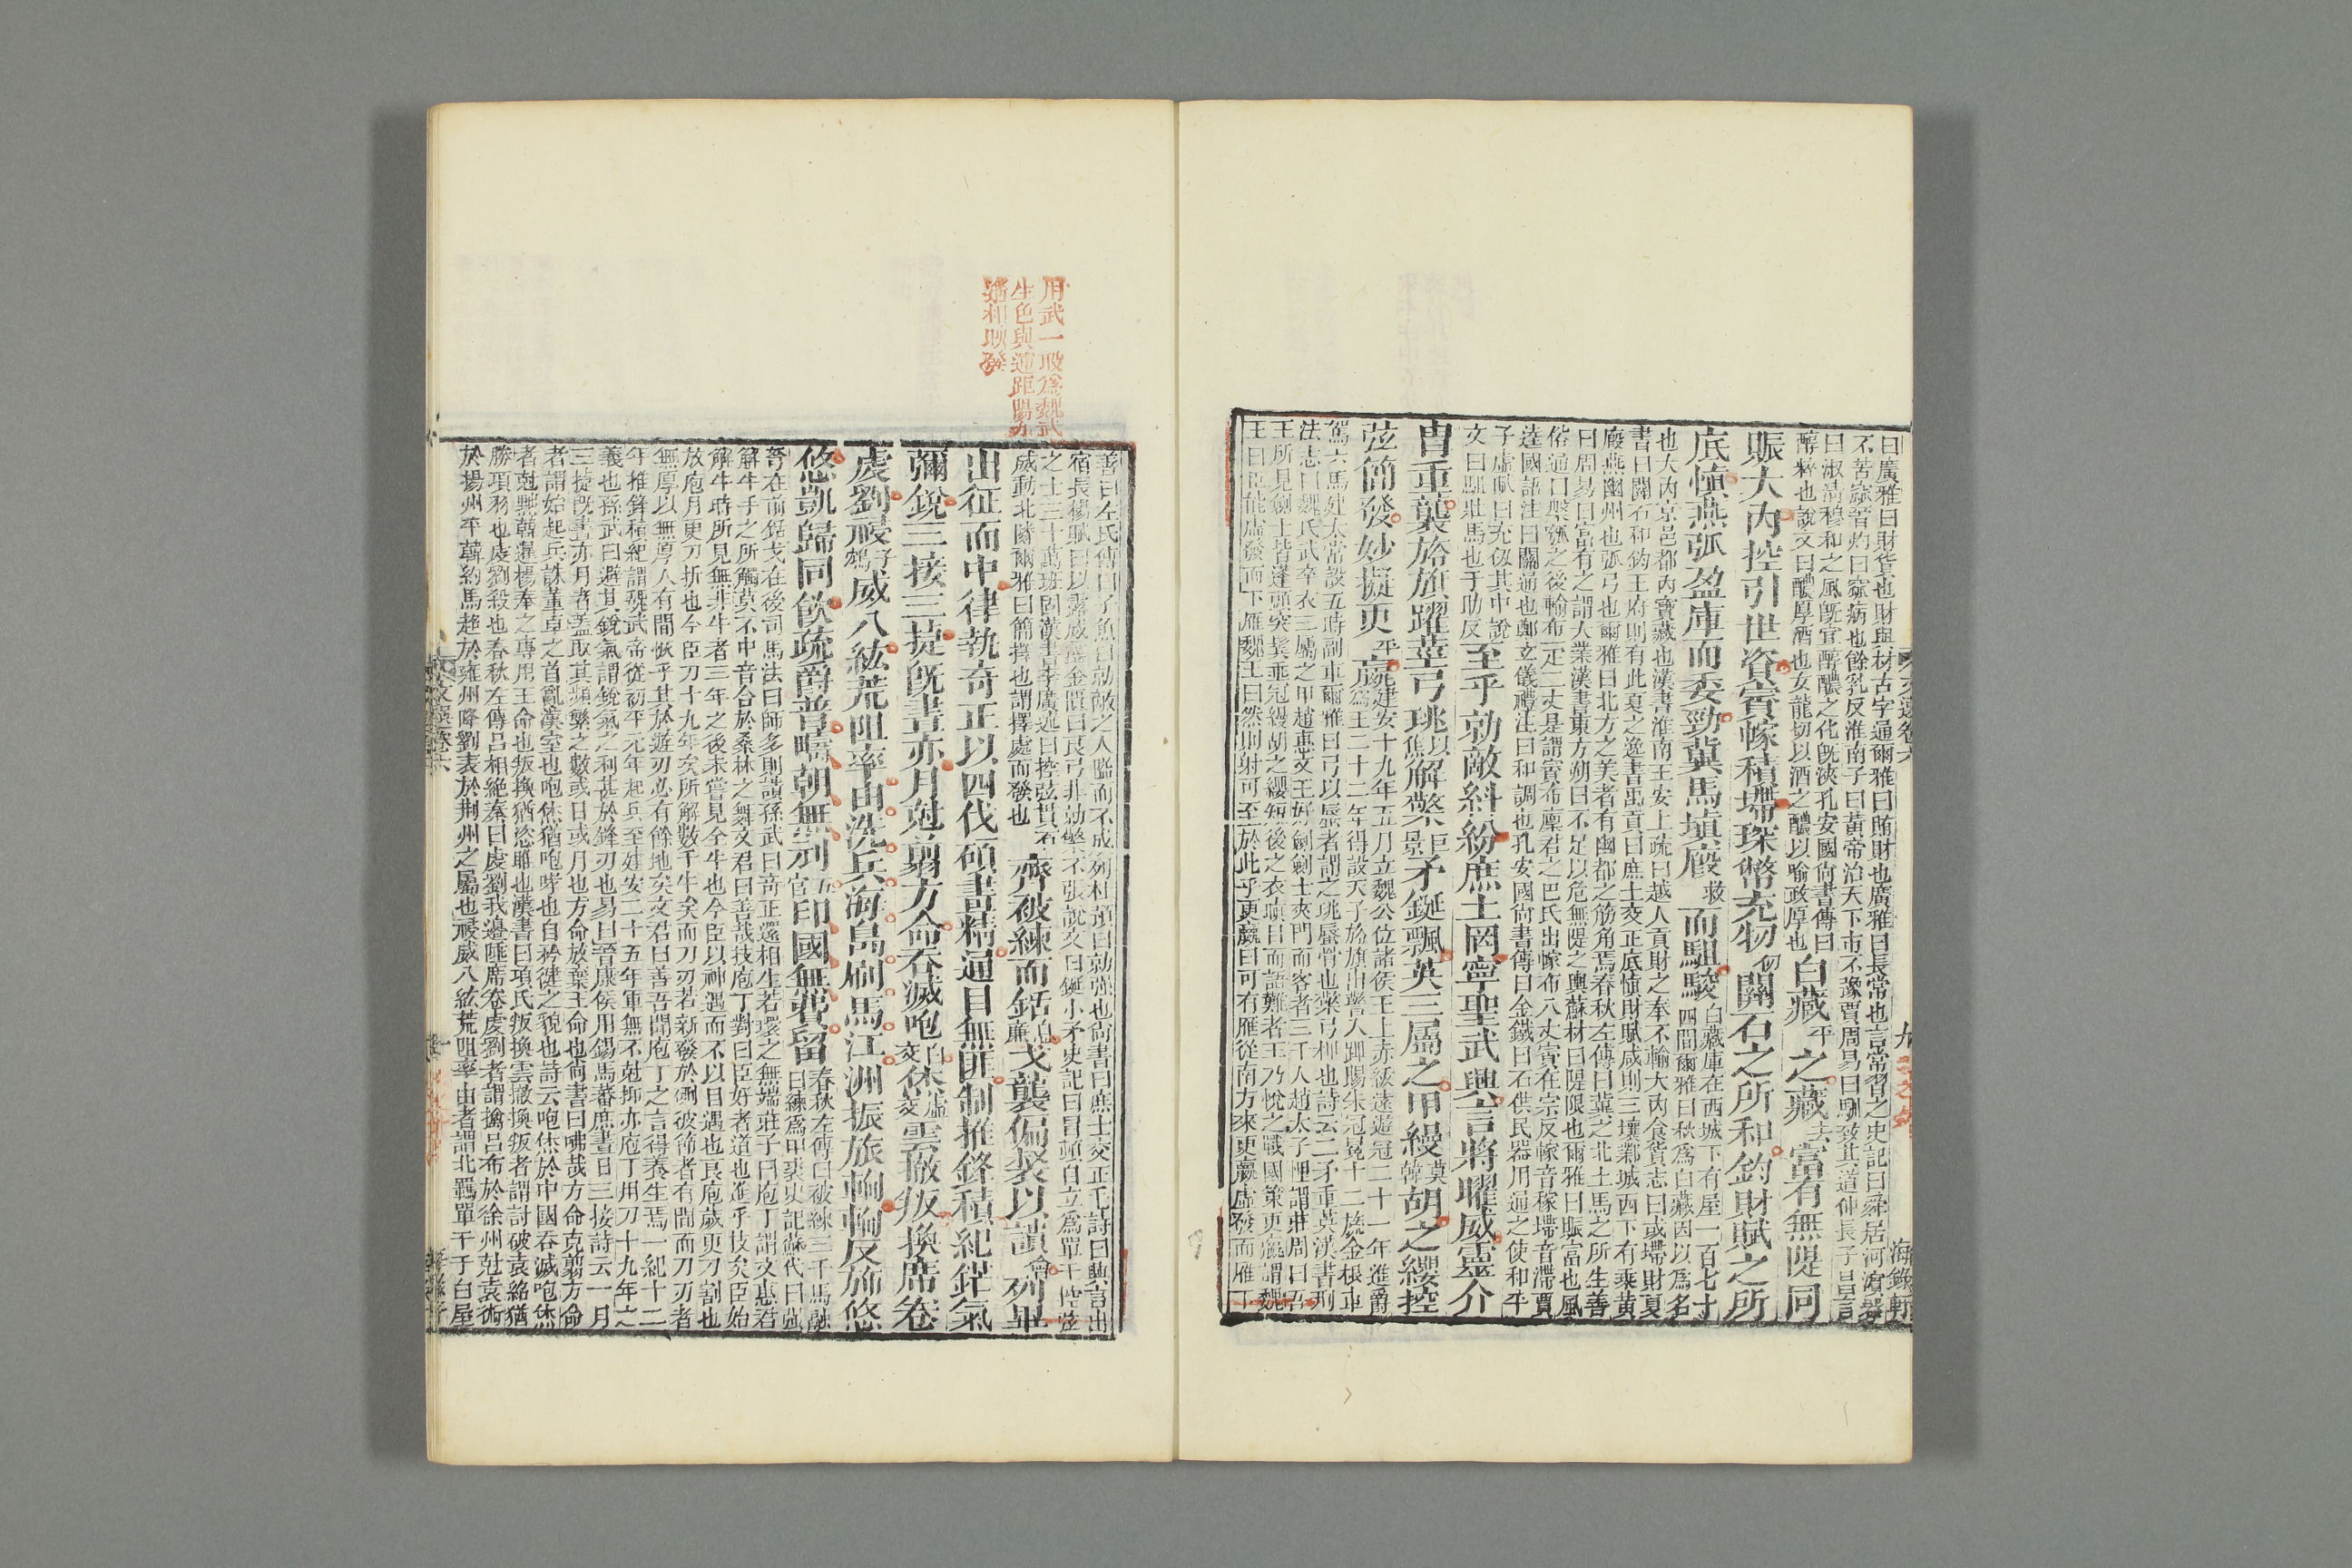 曰廣雅曰財貨也財與材古字通爾雅曰賄財也廣雅曰長常也言常習之史記曰舜居河濱器
不苦窳晉灼曰窳病也餘乳反淮南子曰黃帝治天下市不豫賈周易曰馴致其道仲長子昌言
曰淑清穆和之風既宣醇醲之化既浹孔安國尚書傳曰
醇粹也說文曰醲厚酒也女龍切以酒之醲以喻政厚也
白藏平之藏去富有無隄同
賑大內控引世資賨幏積墆琛幣充牣刃關石之所和鈞財賦之所
底慎燕弧盈庫而委勁冀馬填廄救而駔駿
白藏庫在西城下有屋一百七十
四間爾雅曰秋爲白藏因以爲名
也大內京邑都內寶藏也漢書淮南王安上疏曰越人貢財之奉不輸大內食貨志曰或墆財夏
書曰關石和鈞王府則有此夏之逸書禹貢曰庶土交正底慎財賦咸則三壤鄴城西下有乘黃
廄燕幽州也弧弓也爾雅曰北方之美者有幽都之筋角焉春秋左傳曰冀之北土馬之所生善
曰周易曰富有之謂大業漢書東方朔曰不足以危無隄之輿蘇林曰隄限也爾雅曰賑富也風
俗通曰槃瓠之後輸布一疋二丈是謂賨布廩君之巴氏出幏布八丈賨在宗反幏音稼墆音滯賈
逵國語注曰關通也鄭玄儀禮注曰和調也孔安國尚書傳曰金鐵曰石供民器用通之使和平
子虛賦曰充牣其中說
文曰駔壯馬也于助反
至乎勍敵糾紛庶土罔寧聖武興言將曜威靈介
冑重襲旍旗躍莖弓珧以焦解檠巨景矛鋋飄英三屬之甲縵莫韓胡之纓控
弦簡發妙擬更平嬴
建安十九年五月立魏公位諸侯王上赤紱遠遊冠二十一年進爵
爲王二十二年得設天子旍旗出警入蹕賜朱冠冕十二旒金根車
駕六馬建太常設五時副車爾雅曰弓以蜃者謂之珧蜃骨也檠弓柙也詩云二矛重英漢書刑
法志曰魏氏武卒衣三屬之甲趙惠文王好劒劒士夾門而客者三千人趙太子悝謂莊周曰吾
王所見劒士皆蓬頭突鬢垂冠縵胡之纓短後之衣瞋目而語難者王乃悅之戰國策更嬴謂魏
王曰臣能虛發而下雁魏王曰然則射可至於此乎更嬴曰可有雁從南方來更嬴虛發而雁丁
文選卷六 九 海錄軒
用武一段爲魏武
生色與通距陽
遙相映發
善曰左氏傳曰子魚曰勍敵之人隘而不成列杜預曰勍強也尚書曰庶士交正毛詩曰興言出
宿長楊賦曰以露威靈金匱曰良弓非勍檠不張說文曰鋋小矛史記曰冒頓自立爲單于控弦
之士三十萬班固漢書李廣述曰控弦貫石
威動北隣爾雅曰簡擇也謂擇處而發也
齊被練而銛廉戈襲偏裻以讃列畢
出征而中律執奇正以四伐碩畫精通目無匪制推鋒積紀鋩氣
彌銳三接三捷既晝亦月剋翦方命吞滅咆烋雲撤叛換席卷
虔劉祲威八紘荒阻率由洗兵海島刷馬江洲振旅輷輷反旆悠
悠凱歸同飲疏爵普疇朝無刓印國無費留
春秋左傳曰被練三千馬融
曰練爲甲裹史記蘇代曰強
弩在前銛戈在後司馬法曰師多則讃孫武曰奇正還相生若環之無端莊子曰庖丁謂文惠君
解牛手之所觸莫不中音合於桑林之舞文君曰善哉技庖丁對曰臣好者道也進乎技矣臣始
解牛時所見無非牛者三年之後未嘗見全牛也今臣以神遇而不以目遇也良庖歲更刀割也
放庖月更刀折也今臣刀十九年矣所解數千牛矣而刀刃若新發於硎彼節者有間而刀刃者
無厚以無厚入有間恢乎其於遊刃必有餘地矣文君曰善吾聞庖丁之言得養生焉一紀十二
年推鋒積紀謂魏武帝從初平元年起兵至建安二十五年軍無不剋抑亦庖丁用刀十九年之
義也孫武曰避其銳氣謂銳氣之利甚於鋒刃也易曰晉康侯用錫馬蕃庶晝日三接詩云一月
三捷既晝亦月者蓋取其頻繁之數或日或月也方命放棄王命也尚書曰咈哉方命克翦方命
者謂始起兵誅董卓之首亂漢室也咆烋猶咆哮也自矜健之貌也詩云咆烋於中國吞滅咆烋
者剋黜韓暹楊奉之專用王命也叛換猶恣睢也漢書曰項氏叛換雲撤換叛者謂討破袁紹猶
勝項羽也虔劉殺也春秋左傳呂相絕秦曰虔劉我邊陲席卷虔劉者謂擒呂布於徐州剋袁術
於揚州平韓約馬超於雍州降劉表於荆州之屬也祲威八紘荒阻率由者謂北羈單于于白屋
文選卷六